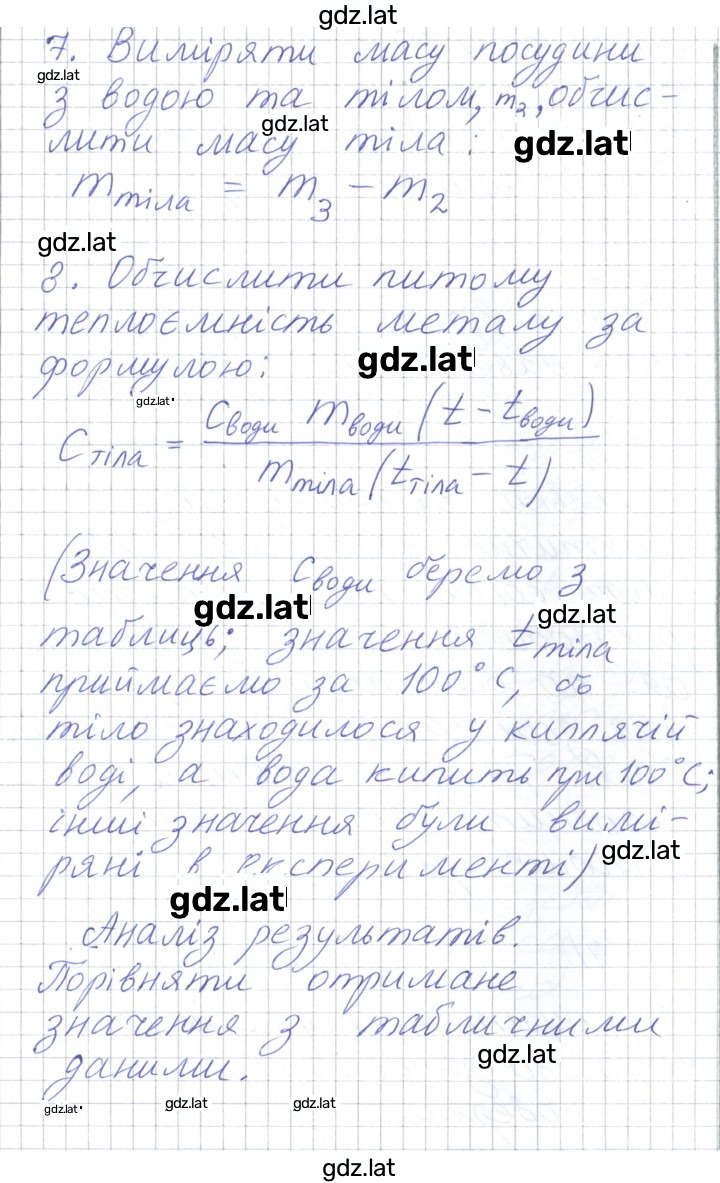 gdz.lat
7. Виміряти масу посудини
gdz.lat
з водою та тілом, m₂, обчис-
gdz.lat
лити масу тіла:
gdz.lat
m тіла = m₃ - m₂
gdz.lat
8. Обчислити питому
теплоємність металу за
формулою:
gdz.lat
gdz.lat
C тіла = C води m води (t - t води) / m тіла (t тіла - t)
(Значення C води беремо з
gdz.lat
gdz.lat
таблиць; значення t тіла
приймаємо за 100°C, бо
тіло знаходилося у киплячій
воді, а вода кипить при 100°C;
інші значення були вимі-
gdz.lat
ряні в експерименті)
gdz.lat
Аналіз результатів.
Порівняти отримане
значення з табличними
gdz.lat
даними.
gdz.lat gdz.lat gdz.lat
gdz.lat